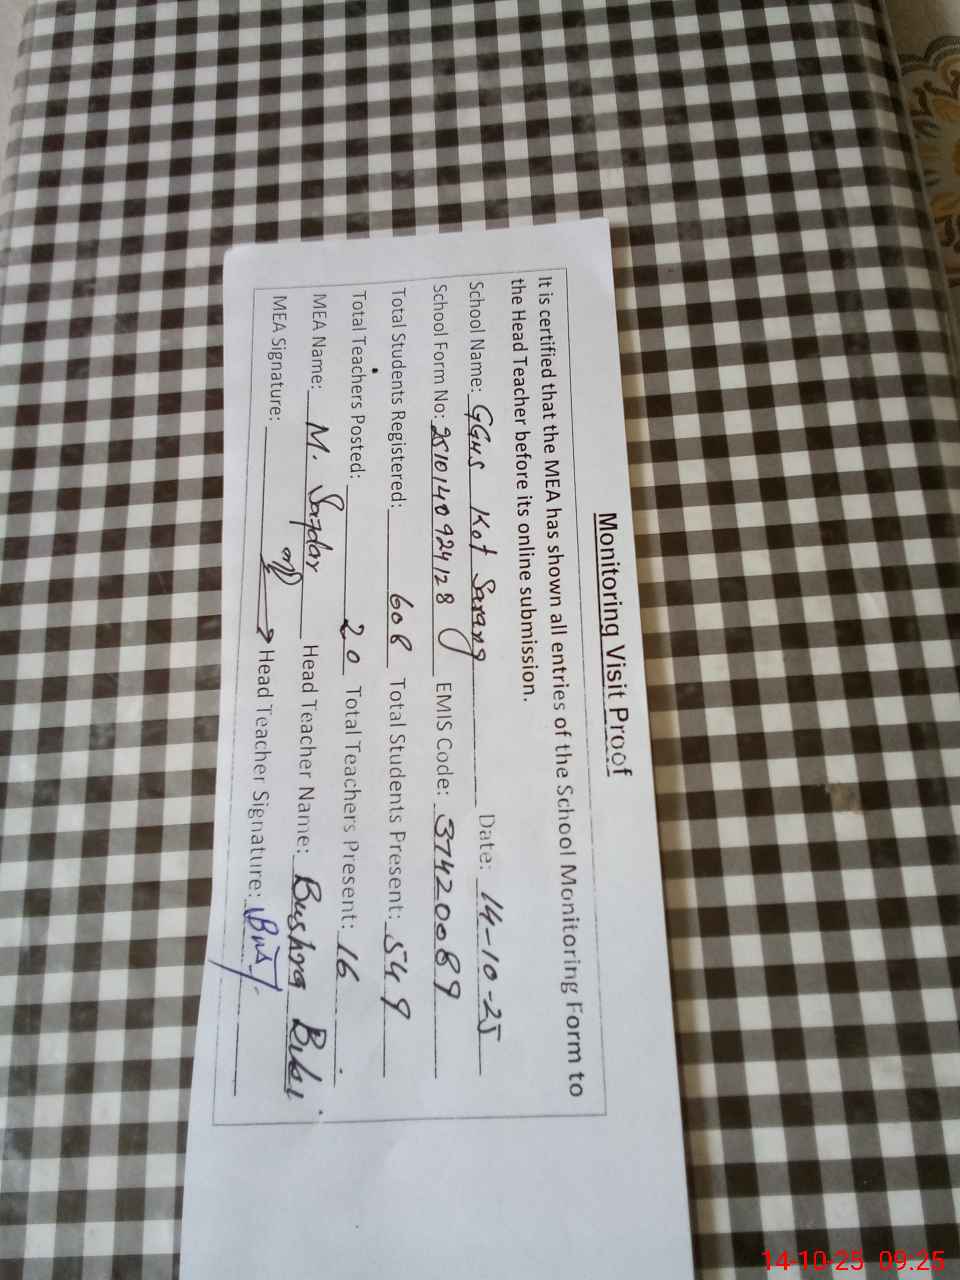 Monitoring Visit Proof
It is certified that the MEA has shown all entries of the School Monitoring Form to
the Head Teacher before its online submission.
School Name: GGHS Kot Sarang Date: 14-10-25
School Form No: 2510140924128 EMIS Code: 37420089
Total Students Registered: 608 Total Students Present: 549
Total Teachers Posted: 20 Total Teachers Present: 16
MEA Name: M. Safdar Head Teacher Name: Bushra Bibi
MEA Signature: Head Teacher Signature:
14-10-25 09:25